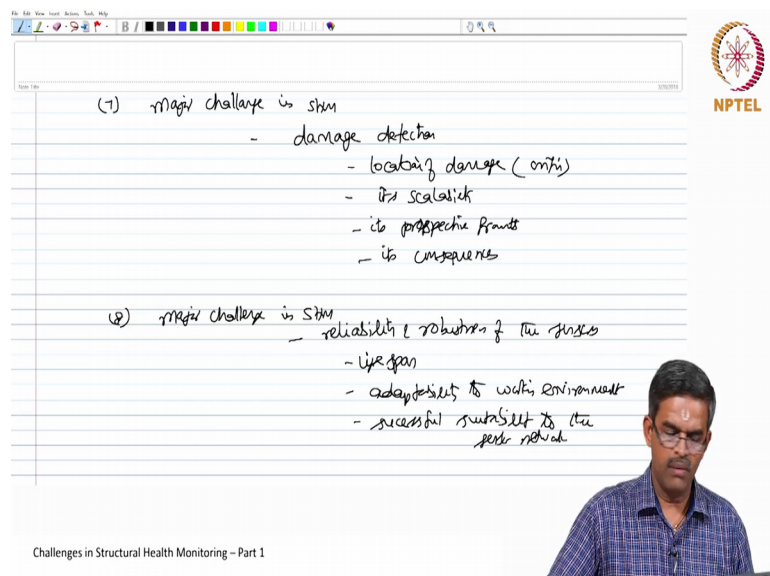 File Edit View Insert Actions Tools Help
B I
Note Title
3/20/2018
NPTEL
(7) major challenge in SHM
- damage detection
- location of damage (
- its
- its prospective growth
- its consequences
(8) major challenge in SHM
- reliability & robustness of the sensors
- life span
- adaptability to working environment
- sucessful suitability to the
sensor network
Challenges in Structural Health Monitoring – Part 1